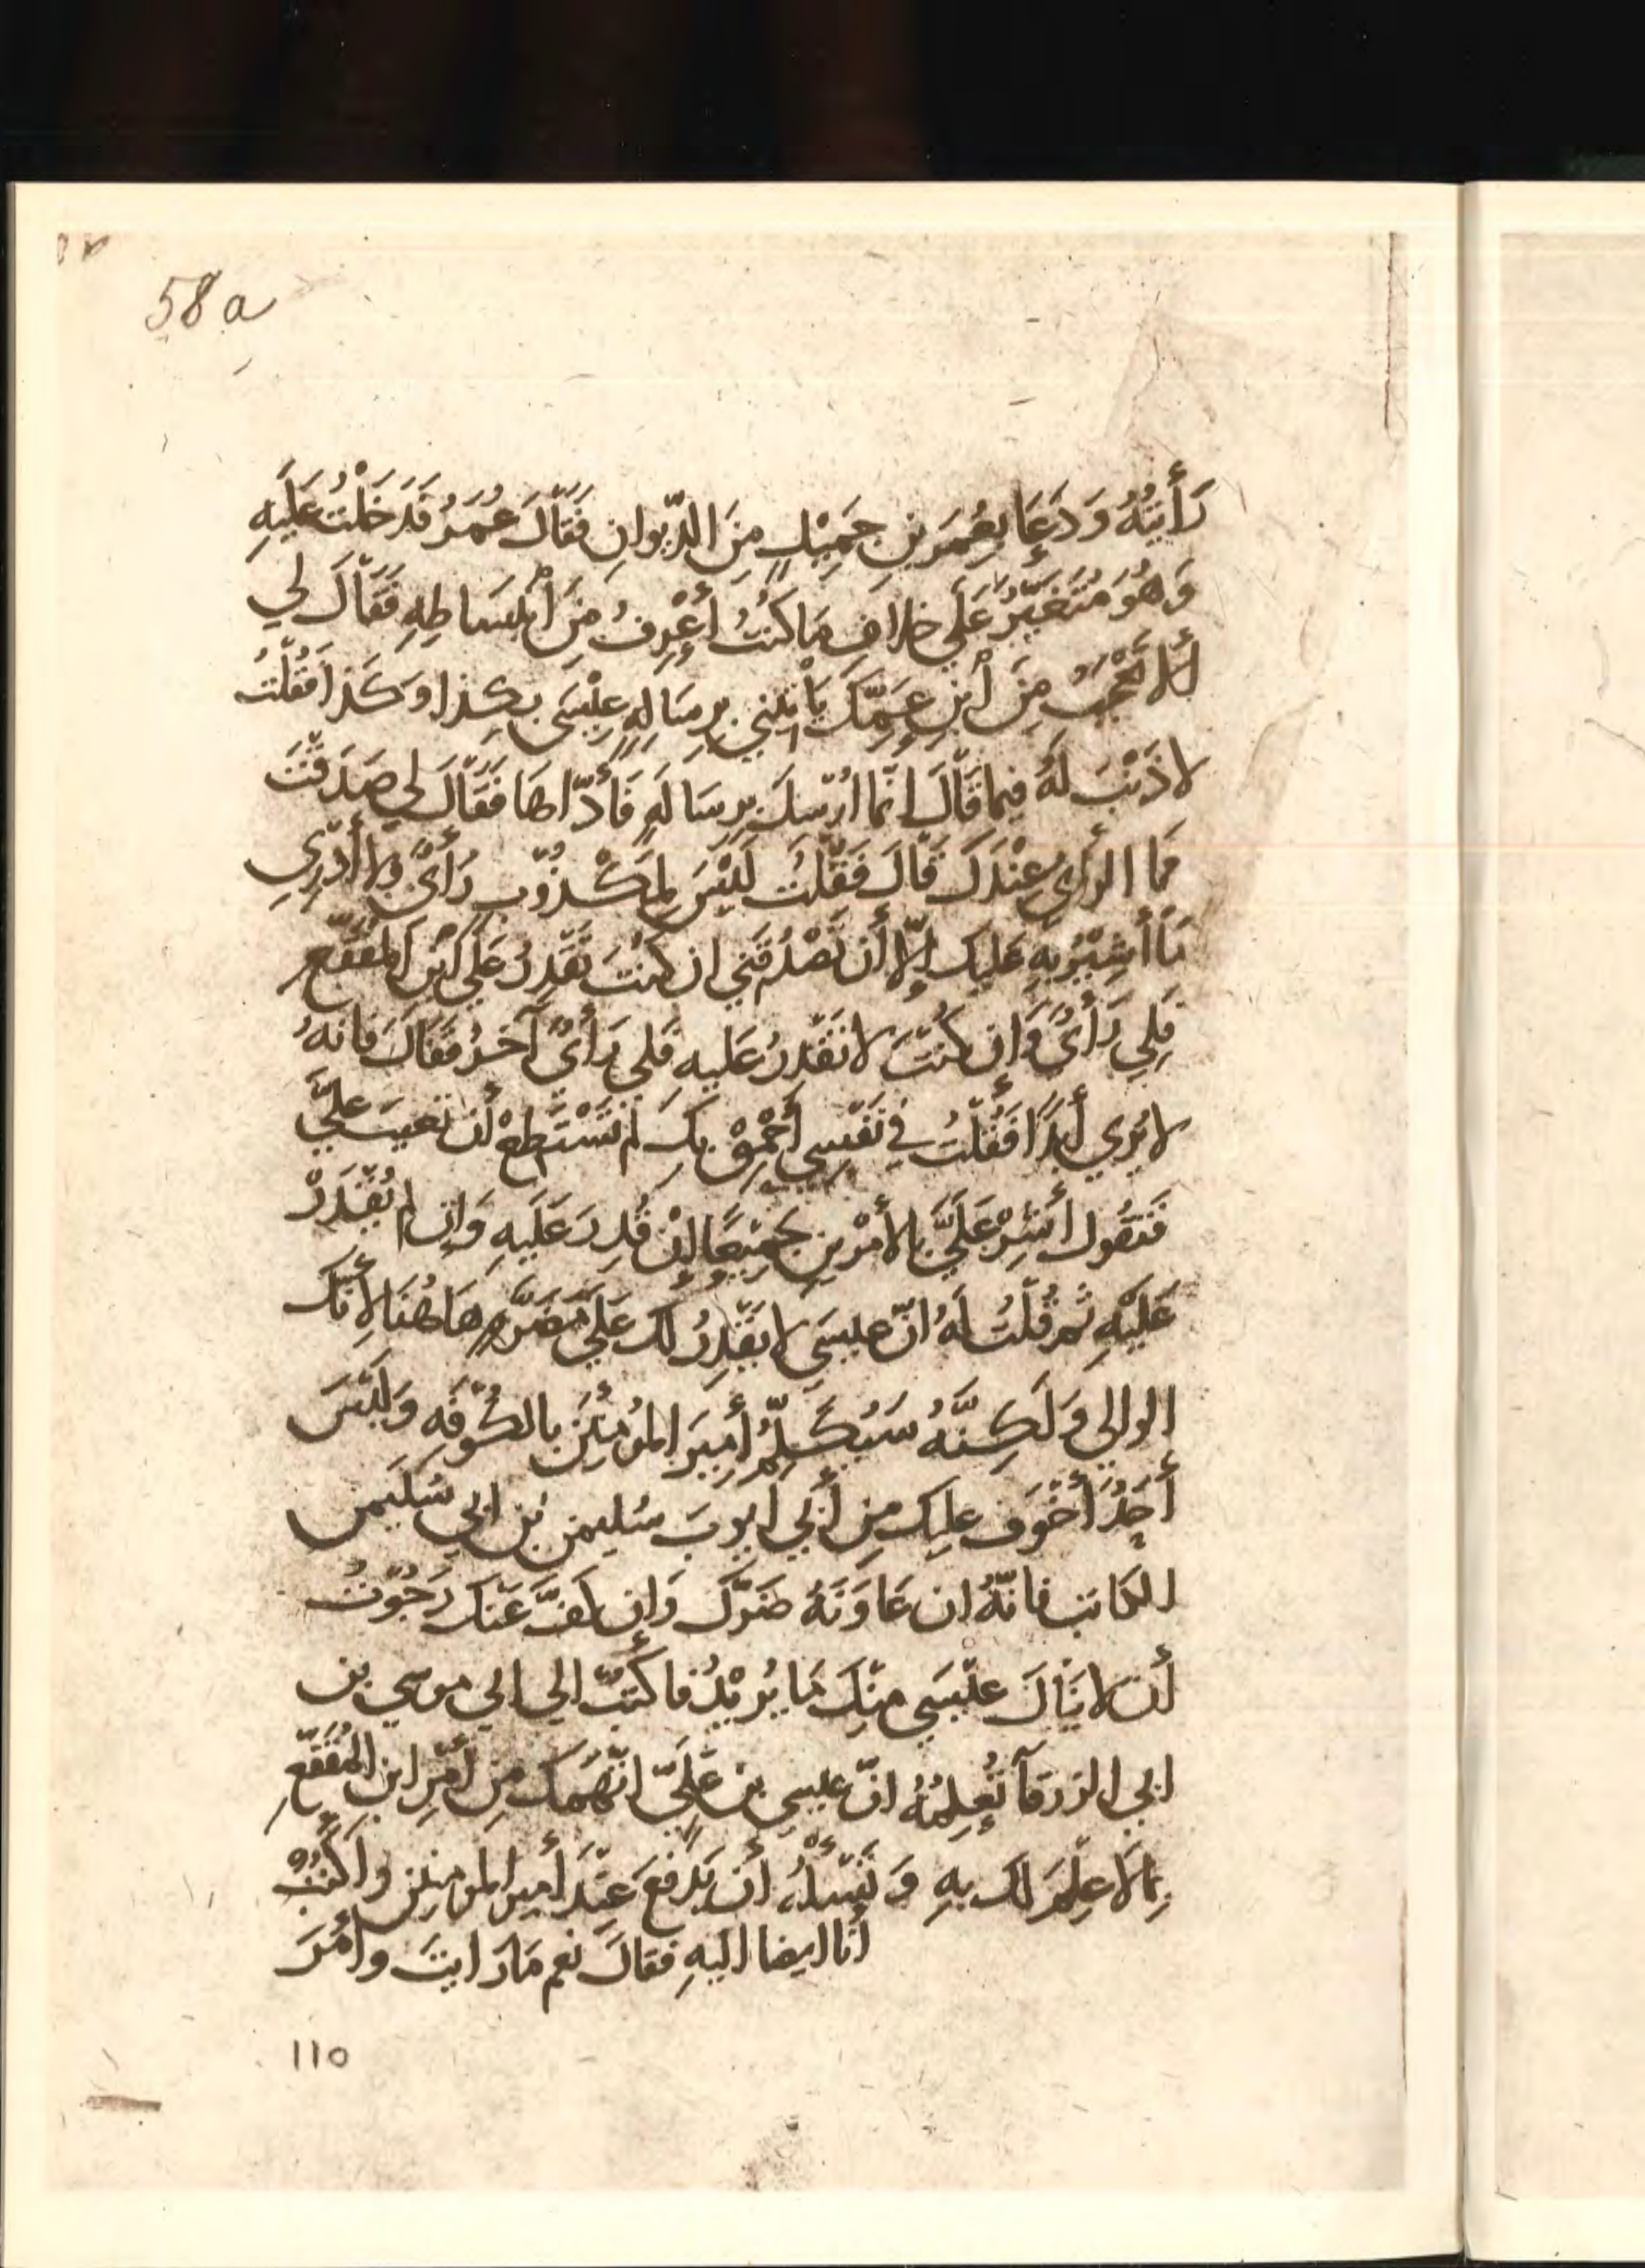 58a
رَأَيتُهُ وَدَعَا بِعُمَرَ بنِ جَمِيْلٍ مِنَ الدِّيوانِ فَقَالَ عُمَرُ فَدَخَلْتُ عَلَيهِ
وَهُوَ مُتَغَيِّرٌ عَلَي خلافِ مَا كنتُ أَعْرِفُ مِنَ أنْبِسَاطِهِ فَقَالَ لي
ألا تَعْجَبُ مِنَ أبْنِ عَمِّكَ يَأتِيْنِي بِرِسَالِهِ عِيْسَى بِكذا وَكَذا فَقُلْتُ
لا ذَنْبَ لَهُ فيما قَالَ انّما ارْسِلَ بِرِسَالَهٍ فَأَدّاهَا فَقَالَ لي صَدَقْتَ
فَمَا الرأي عِنْدَكَ قَالَ فَقُلْتُ لَيْسَ لِمَكْذُوْبٍ رَأيٌ وَلا أَدْرِي
مَا أُشِيْرُ بِهِ عَلَيك إلّا أَن تَصْدُقَني ان كنتَ تَقْدِرُ عَلَي ابْنِ المُقَفَّعِ
فَلِي رَأيٌ وَان كُنْتَ لا تَقْدِرُ عَلَيهِ فَلِي رَأيٌ آخَرُ فَقَالَ فَانهُ
لا يُري أَبَدًا فَقُلْتُ في نَفْسِي أَحْمِقْ بِكَ لم تَسْتَطِعْ أَن تغيبَ عَلَيَّ
فَتَقُول أَشِرْ عَلَيَّ بِالأَمْرينِ جَمِيْعًا إِنْ قُدِرَ عَلَيهِ وَإِن لم يُقْدَرْ
عَلَيْهِ ثم قُلْتُ لَهُ انّ عيسَي لا يَقْدِرُ لك عَلَي مَضَرّهٍ هَاهُنَا لأنّك
الوالي وَلَكِنَّهُ سَيُكَلِّمُ أَمِيرَ المُؤمنينَ بالكُوْفَهِ وَلَيْسَ
أَحَدٌ أخْوَف عليك مِن أَبي أيوبَ سُليمن بن ابي سُلَيمن
الكاتب فانّهُ ان عَاوَنَهُ ضَرَّكَ وَان كفَّ عَنْكَ رَجَوْتُ
أن لا يَنَالَ عِيْسَي مِنْكَ مَا يُرِيْدُ فاكتُبْ الي ابي موسي بن
ابي الزرقآ تُعلِمُهُ انّ عيسي بن عَلِيّ اتّهَمَك مِن أَمْرِ ابنِ المُقَفّعِ
بِما لا عِلْمَ لك بِهِ وَ تَسْألُهُ أن يَدْفعَ عِنْدَ أَمير المؤمنين واكْتُبُ
أنا ايضا اليهِ فقالَ نعم مَا رَايتَ وأَمَرَ
١١٥